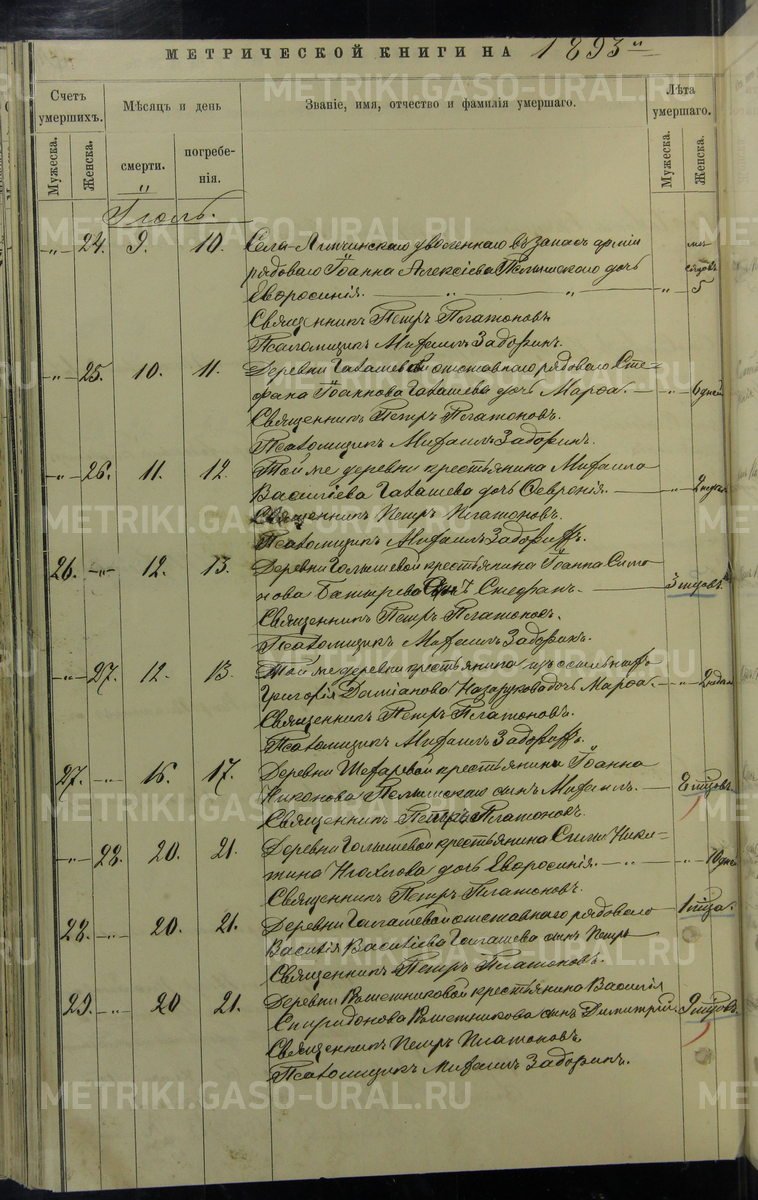 МЕТРИЧЕСКОЙ КНИГИ НА 1893
Счетъ умершихъ.
Мужеска.
Женска.
Мѣсяцъ и день
смерти.
погребенія.
Званіе, имя, отчество и фамилія умершаго.
Лѣта умершаго.
Мужеска.
Женска.
Іюль.
24. 9. 10. Села Липчинскаго уволеннаго въ запасъ арміи мѣ
рядоваго Іоанна Алексіева дочь сяцовъ
Евфросинія. 5
Священникъ Петръ Платоновъ
Псаломщикъ Михаилъ Задоринъ.
25. 10. 11. Деревни отставнаго рядоваго Сте-
фана Іоаннова дочь Марѳа. 6 дней
Священникъ Петръ Платоновъ.
Псаломщикъ Михаилъ Задоринъ.
26. 11. 12. Той же деревни крестьянина Михаила
Василіева дочь Февронія. 2
Священникъ Петръ Платоновъ.
Псаломщикъ Михаилъ Задоринъ
26. 12. 13. Деревни Голышевой крестьянина Іоанна Симо
нова Батырева сынъ Стефанъ. 3 мѣсяцовъ
Священникъ Петръ Платоновъ.
Псаломщикъ Михаилъ Задоринъ.
27. 12 13 Той же деревни крестьянина изъ ссыльныхъ
Григорія Даміанова Назарукова дочь Марѳа. 2 недѣли
Священникъ Петръ Платоновъ.
Псаломщикъ Михаилъ Задоринъ.
27. 16. 17. Деревни крестьянина Іоанна
Никонова сынъ Михаилъ. 8 мѣсяцовъ
Священникъ Петръ Платоновъ.
28. 20. 21. Деревни Голышевой крестьянина Силы Ники-
тина дочь Евфросинія. 10 дней
Священникъ Петръ Платоновъ.
28. 20. 21. Деревни отставнаго рядоваго 1 года.
Василія Василіева сынъ Петръ
Священникъ Петръ Платоновъ.
29. 20 21. Деревни Решетниковой крестьянина Василія
Спиридонова Решетникова сынъ Димитрій. 9 мѣсяцовъ
Священникъ Петръ Платоновъ
Псаломщикъ Михаилъ Задоринъ.
METRIKI.GASO-URAL.RU